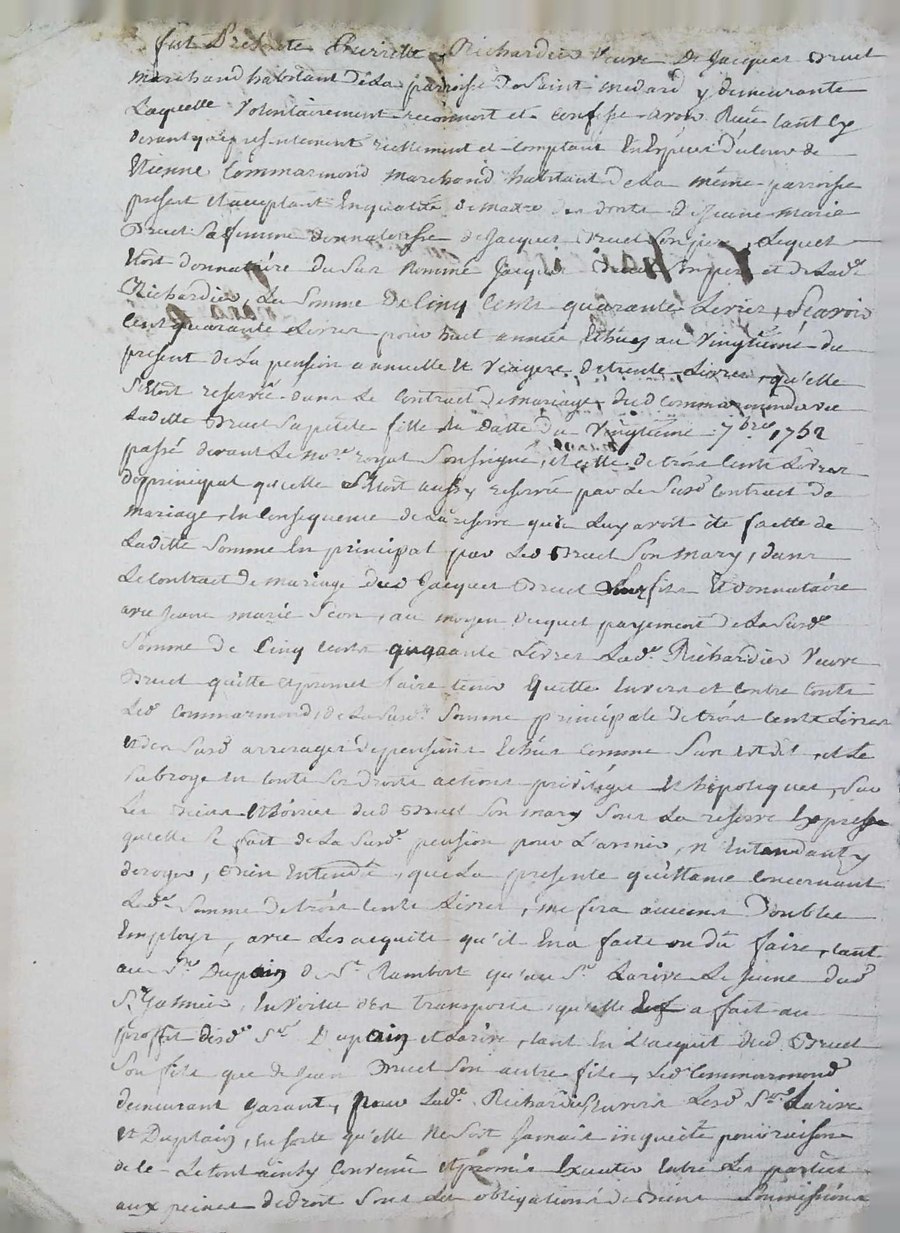 fut Presente Pierrette Richardier Veuve De Jacques Druet
marchand habitant de La parroisse De Saint medard y demeurante
Laquelle Volontairement reconnoit et confesse avoir Recu tant cy
devant que presentement reellement et comptant En Especes Du cours de
Etienne Commarmond marchand habitant De La même parroisse
present et acceptant En qualité de maitre des droits De Jeanne marie
Druet Sa femme donnataire de Jacques Druet Son pere, Lequel
Etoit donnataire du Sus Nommé Jacques Druet Son pere et de Lade
Richardier, La Somme De Cinq Cents quarante Livres, Scavoir
Cent quarante Livres pour huit année Echues au Vingtieme du
present de La pension annuelle Et Viagere de trente Livres, qu'elle
S'Etoit reservée dans Le Contract De mariage dud Commarmond avec
Laditte Druet Sa petite fille En datte du Vingtieme 7bre 1752
passé devant Le nore royal Soussigné, et celle de trois Cents Livres
De principal qu'elle S'Etoit aussy reservée par Le Susd Contract de
mariage, En Consequence de La reserve qui Luy avoit été faitte de
Laditte Somme En principal par Led Druet Son mary, dans
Le Contract de mariage dud Jacques Druet fils Et donnataire
avec Jeanne marie Seon, au moyen duquel payement de La Susde
Somme de Cinq Cents quarante Livres Lade Richardier Veuve
Druet quitte et promet faire tenir quitte Envers et contre touts
Led Commarmond, de La Susde Somme principale De trois Cents Livres
Et des Susd arrerages de pensions Echus Comme Sus est dit, et Le
Subroge En touts Ses droits actions privileges Et hipoteques, Sur
Les Biens Et hoirie dud Druet Son mary Sous La reserve Expresse
qu'elle Se fait de La Susde pension pour L'avenir, n'Entendant y
deroger, Bien Entendu, que La presente quittance Concernant
Lade Somme de trois Cents Livres, ne fera aucuns Doubles
Employs, avec Les acquits qu'il En a faits ou dû faire, tant
au Sr Duplain De St Rambert qu'au Sr Larive Le Jeune dud
St Galmier, En Vertu des transports qu'elle a fait au
proffit desds Srs Duplain et Larive, tant En L'acquit dud Druet
Son fils que de Jean Druet Son autre fils, Led Commarmond
demeurant garant, pour Lade Richardier Envers Lesd Srs Larive
Et Duplain, En Sorte qu'elle Ne Soit Jamais inquietée pour raison
de ce Le tout ainsy Convenu et promis Executer Entre Les parties
aux peines de droit Sous Les obligations de Biens Soumissions